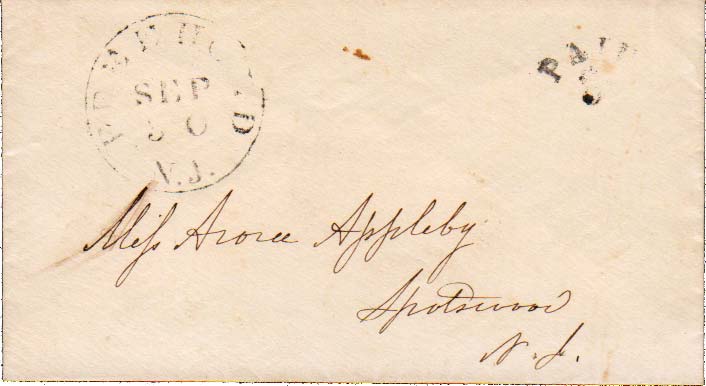 FREEHOLD
SEP
30
N.J.
PAID
3
Miss Aroree Appleby
Spotswood
N. J.